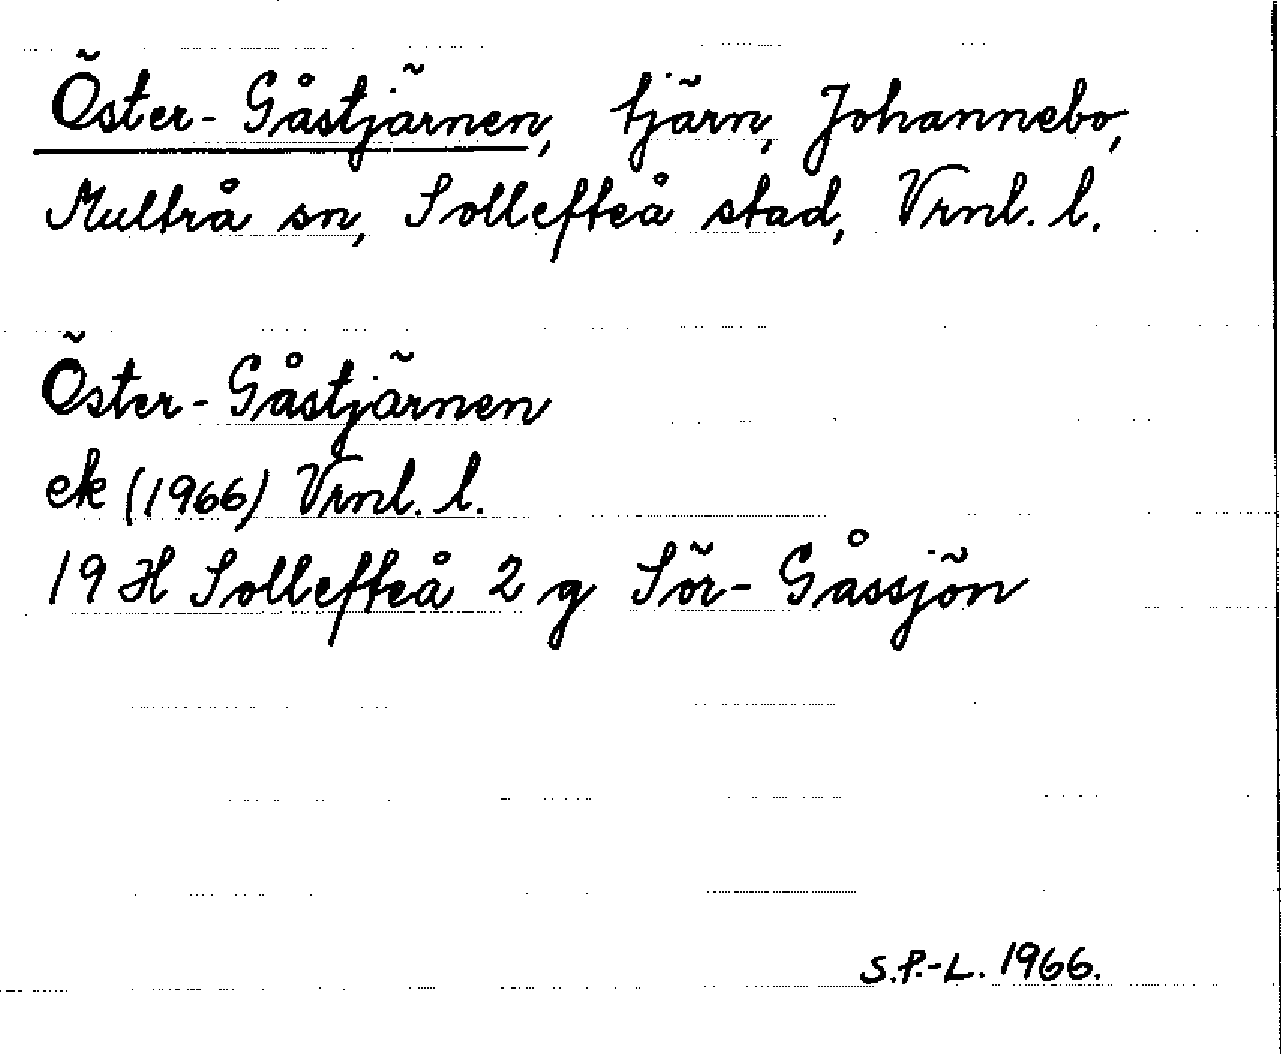 Öster-Gåstjärnen, tjärn, Johannebo,
Multrå sn, Sollefteå stad, Vrnl. l.
Öster-Gåstjärnen
ek (1966) Vrnl. l.
19 H Sollefteå 2 g Sör-Gåssjön
S.P.-L. 1966.